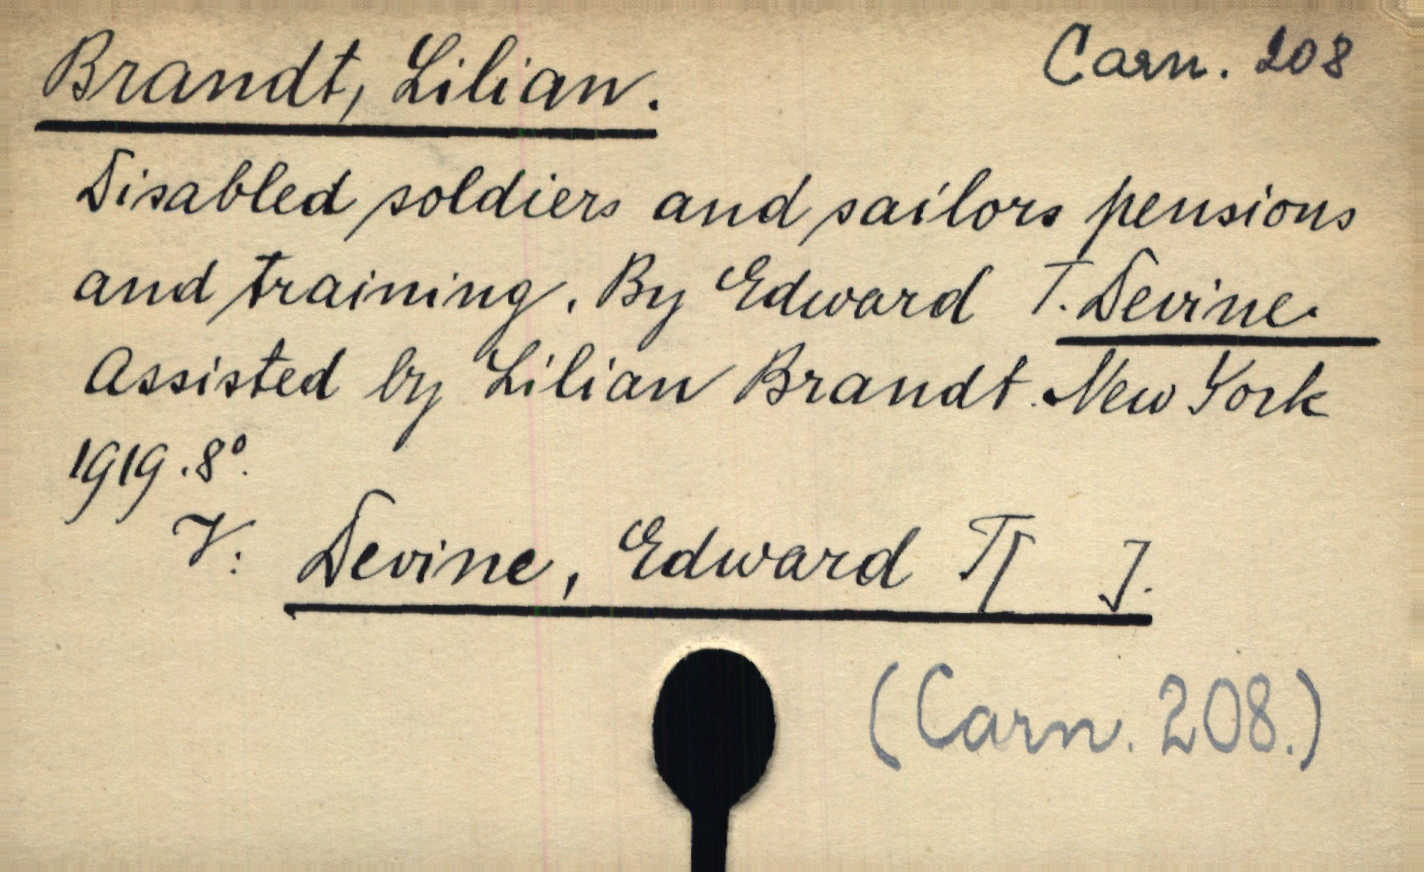 Brandt, Lilian.
Carn. 208
Disabled soldiers and sailors pensions
and training. By Edward T. Devine.
Assisted by Lilian Brandt. New York
1919. 8°.
V: Devine, Edward T[ ].
(Carn. 208.)